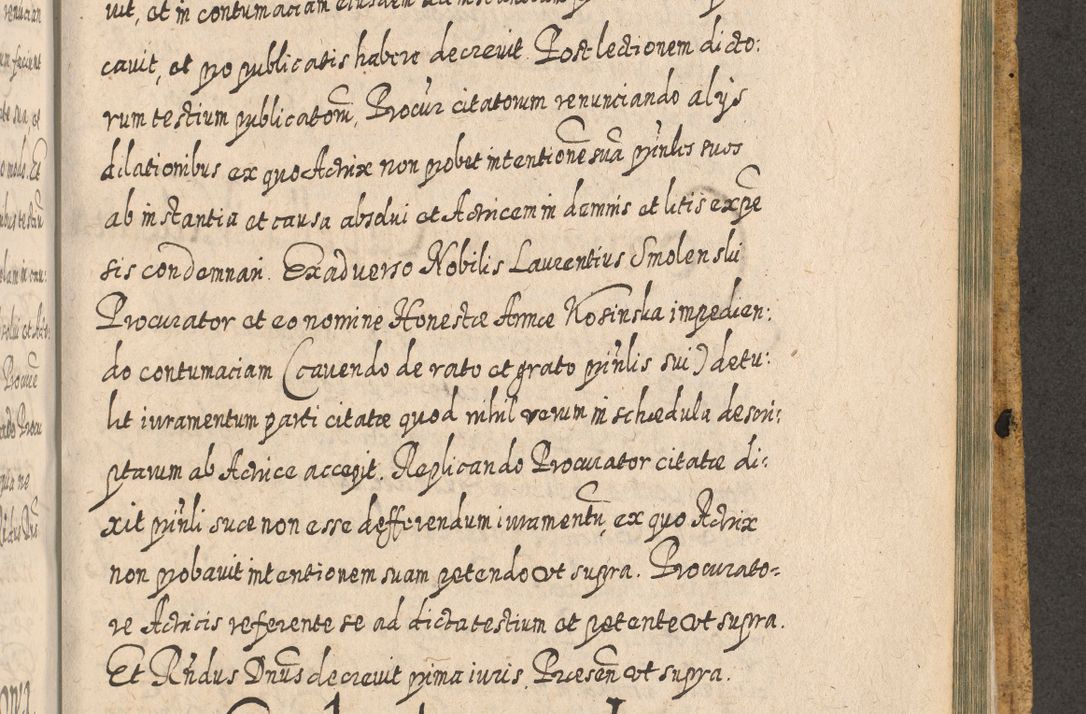 vit, et in contumaciam eiusdem
cavit, et pro publicatis habere decrevit. Post lectionem dicto:
rum testium publicatorũ, Procur citatorum renunciando alijs
dilationibus ex quo Actrix non probet intentionẽ suã prinlis suos
ab instantia et causa absolui et Actricem in damnis et litis expẽ
sis condemnari. Ex adverso Nobilis Laurentius Smolenski
Procurator et eo nomine Honestæ Annæ Kosinska impedien:
do contumaciam (cavendo de rato et grato prinlis sui) detu:
lit iuramentum parti citatæ quod nihil rerum in schedula descri:
ptarum ab Actrice accepit. Replicando Procurator citatæ di:
xit prinli suæ non esse defferendum iuramentũ, ex quo Actrix
non probavit intentionem suam petendo ut supra. Procurato=
re Actricis referente se ad dicta testium et petente ut supra.
Et Rñdus Dnũs decrevit prima iuris. Præsen ut supra.